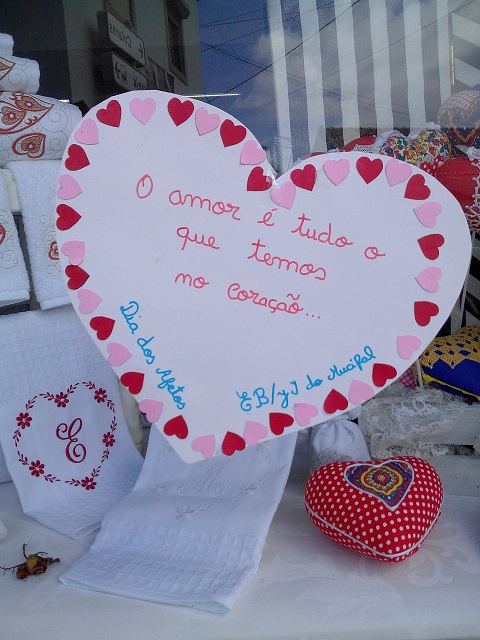 O amor é tudo o
que temos
no coração...
Dia dos Afetos
EB/JI do Mucifal
E